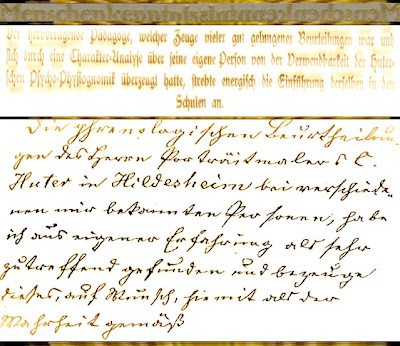 Der hervorragende Pädagoge, welcher Zeuge vieler gut gelungener Beurteilungen war und
sich durch eine Charakter-Analyse über seine eigene Person von der Verwendbarkeit der Huter-
schen Psycho-Physiognomik überzeugt hatte, strebte energisch die Einführung derselben in den
Schulen an.
Die phrenologischen Beurtheilun-
gen des Herrn Porträitmalers C.
Huter in Hildesheim bei verschiede-
nen mir bekannten Personen, habe
ich aus eigener Erfahrung als sehr
zutreffend gefunden und bezeuge
dieses, auf Wunsch, hiemit als der
Wahrheit gemäß